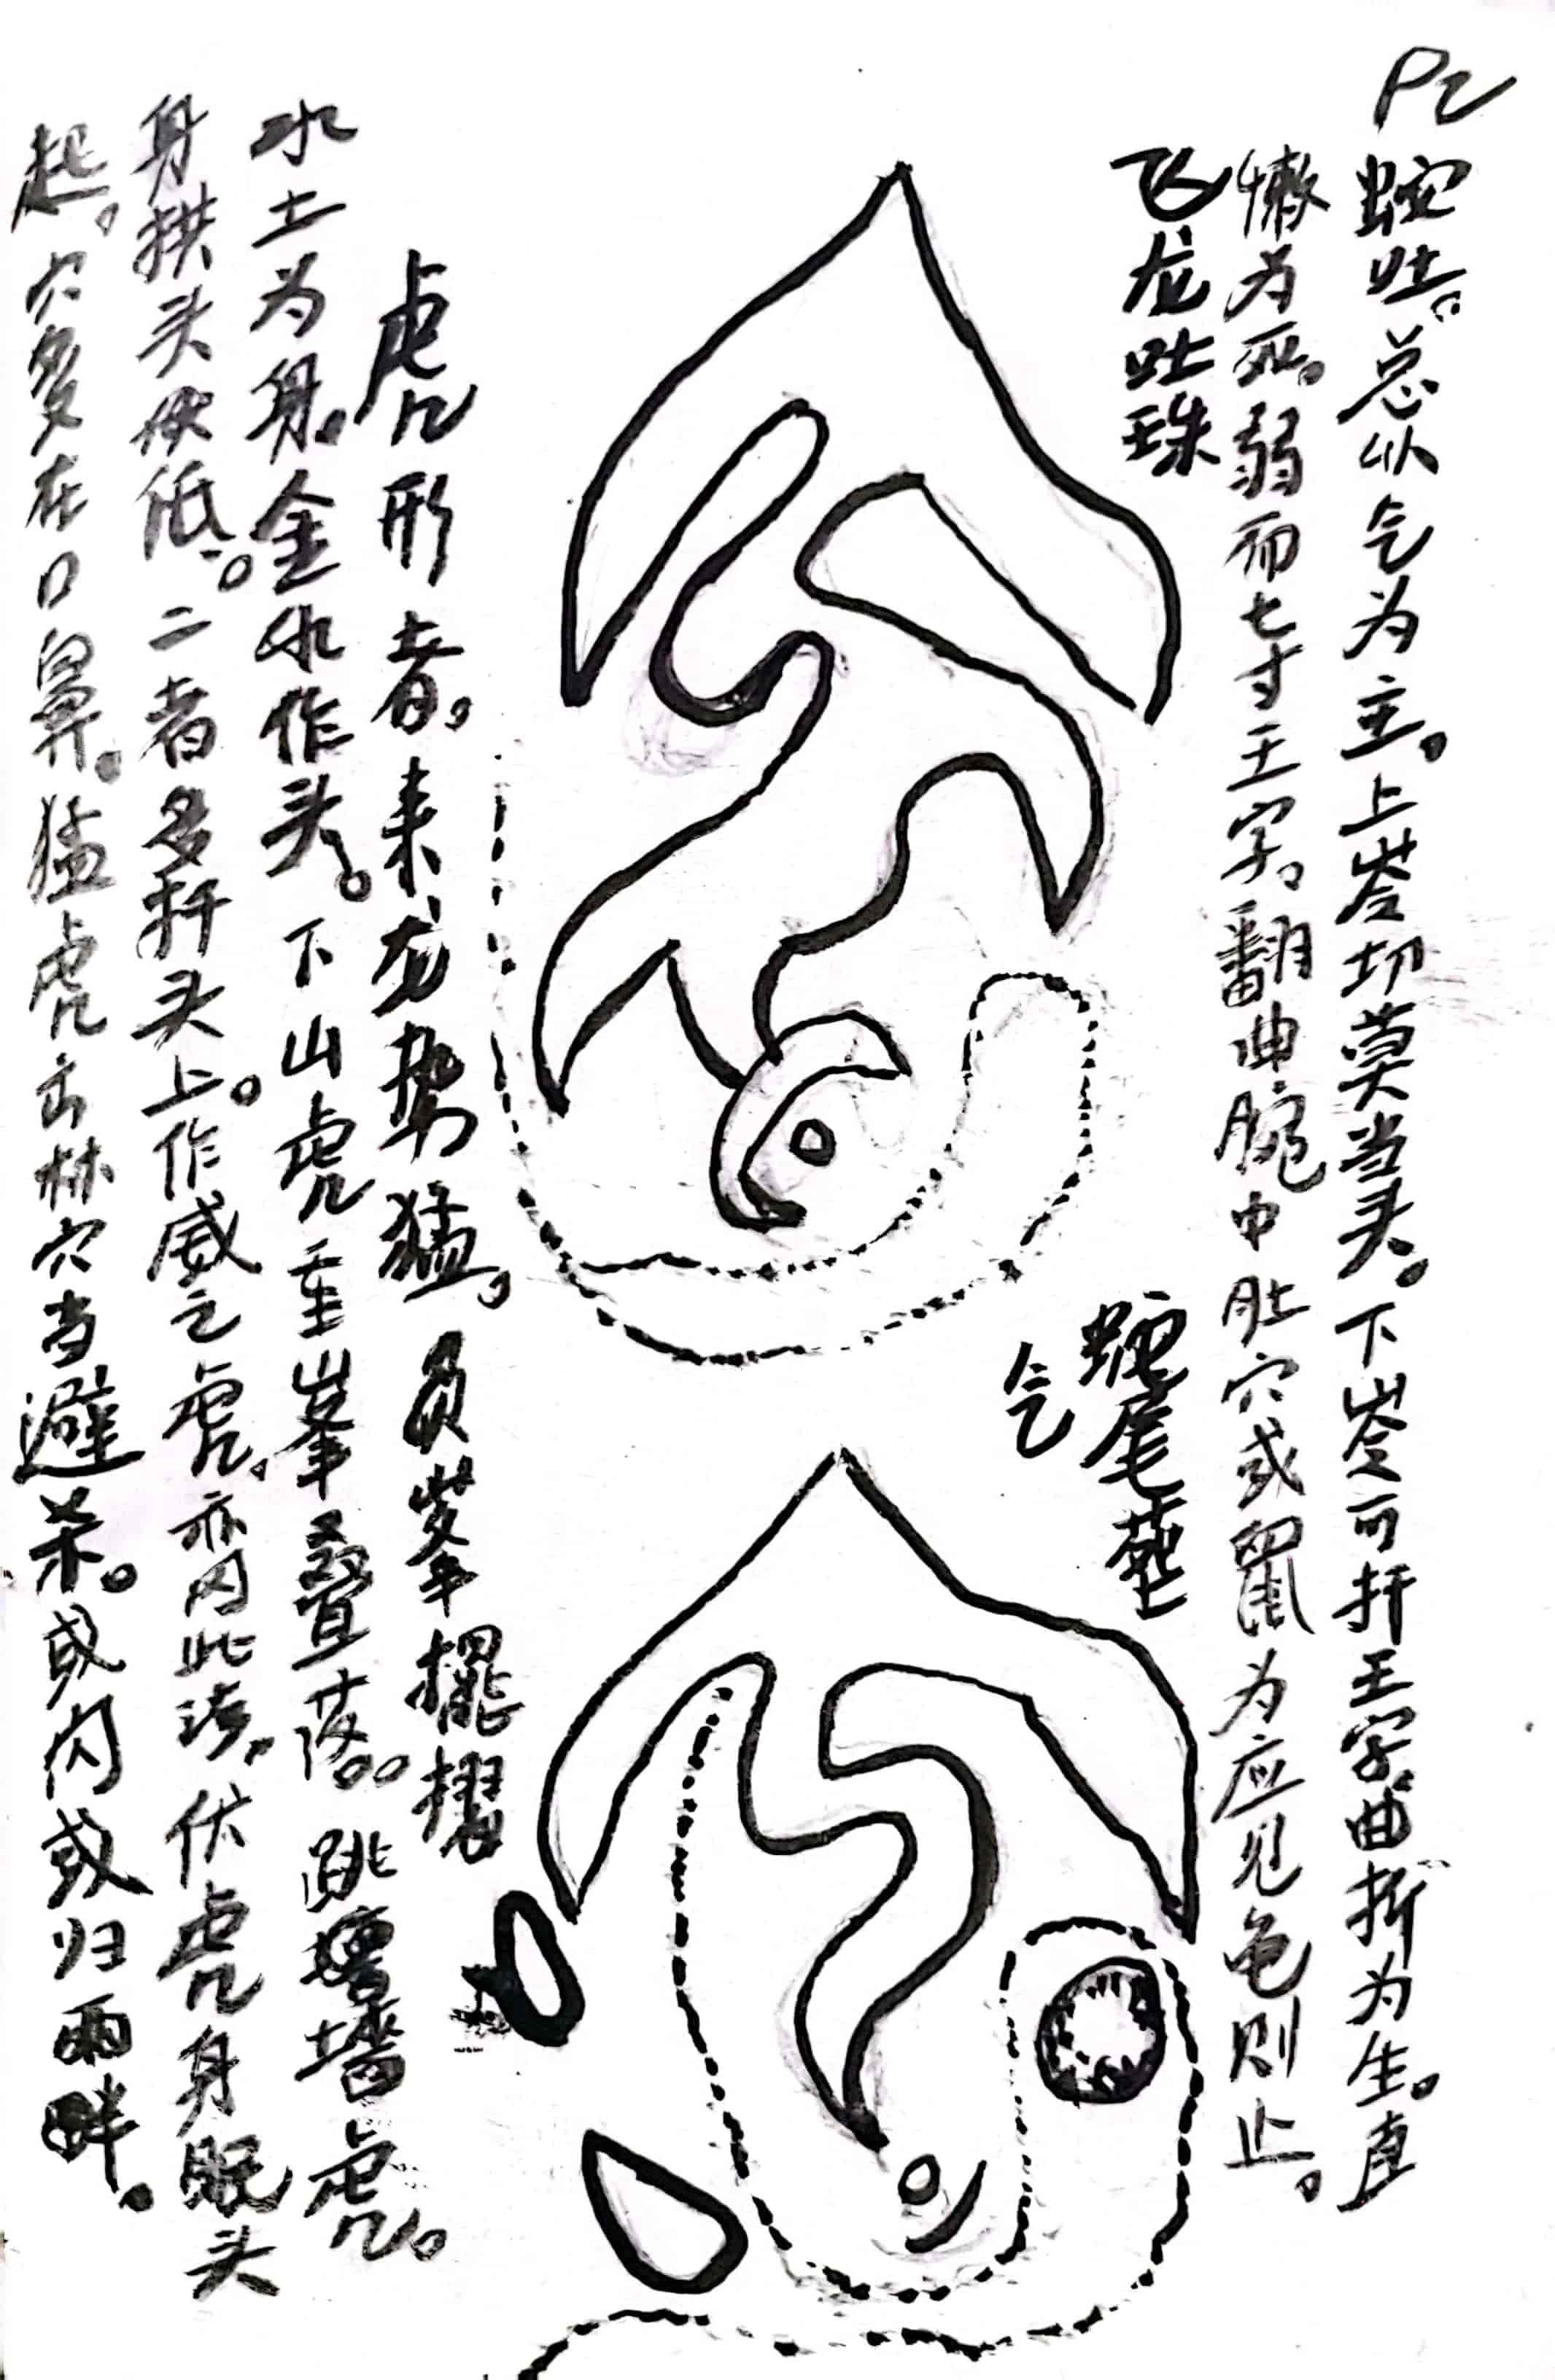 P2
蜿吐。总以气为主。上岺切莫当头。下岺可扦王字。曲折为生。直
懒为死。弱而七寸王字。翻曲腕中肚穴或鼠为应见龟则止。
飞龙吐珠
蛇尾蓝
气
虎形者。来龙势猛。员峯擺摺
水土为身。金水作头。下山虎重峯叠落。跳墻虎。
身拱头伏低。二者多扦头上。作威之虎。亦同此法。伏虎身眠头
起。穴多在口鼻。猛虎出林穴当避杀。或闪或归両畔。